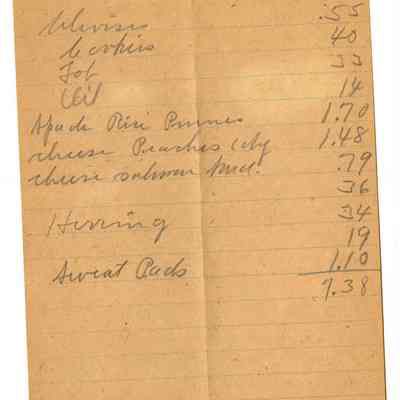 .55
Cookies 40
33
Oil 14
Spuds Rice Prunes 1.70
cheese Peaches 1.48
cheese salmon .79
36
Herring 34
19
Sweat Pads 1.10
7.38